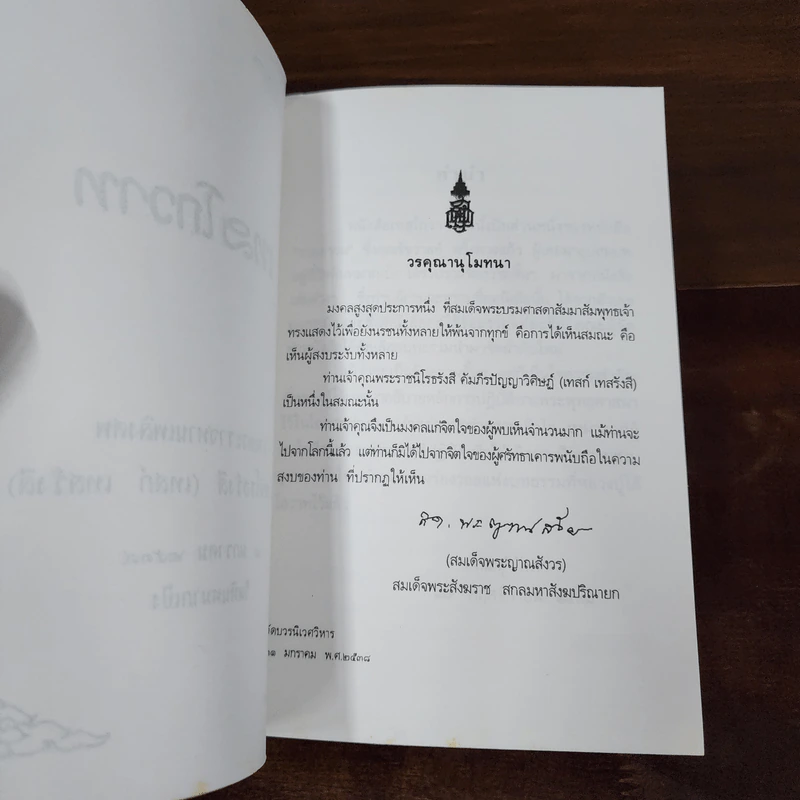 วรคุณานุโมทนา
มงคลสูงสุดประการหนึ่ง ที่สมเด็จพระบรมศาสดาสัมมาสัมพุทธเจ้า
ทรงแสดงไว้เพื่อยังนรชนทั้งหลายให้พ้นจากทุกข์ คือการได้เห็นสมณะ คือ
เห็นผู้สงบระงับทั้งหลาย
ท่านเจ้าคุณพระราชนิโรธรังสี คัมภีรปัญญาวิศิษฏ์ (เทสก์ เทสรังสี)
เป็นหนึ่งในสมณะนั้น
ท่านเจ้าคุณจึงเป็นมงคลแก่จิตใจของผู้พบเห็นจำนวนมาก แม้ท่านจะ
ไปจากโลกนี้แล้ว แต่ท่านก็มิได้ไปจากจิตใจของผู้ศรัทธาเคารพนับถือในความ
สงบของท่าน ที่ปรากฏให้เห็น
(สมเด็จพระญาณสังวร)
สมเด็จพระสังฆราช สกลมหาสังฆปริณายก
วัดบวรนิเวศวิหาร
มกราคม พ.ศ.๒๕๓๘